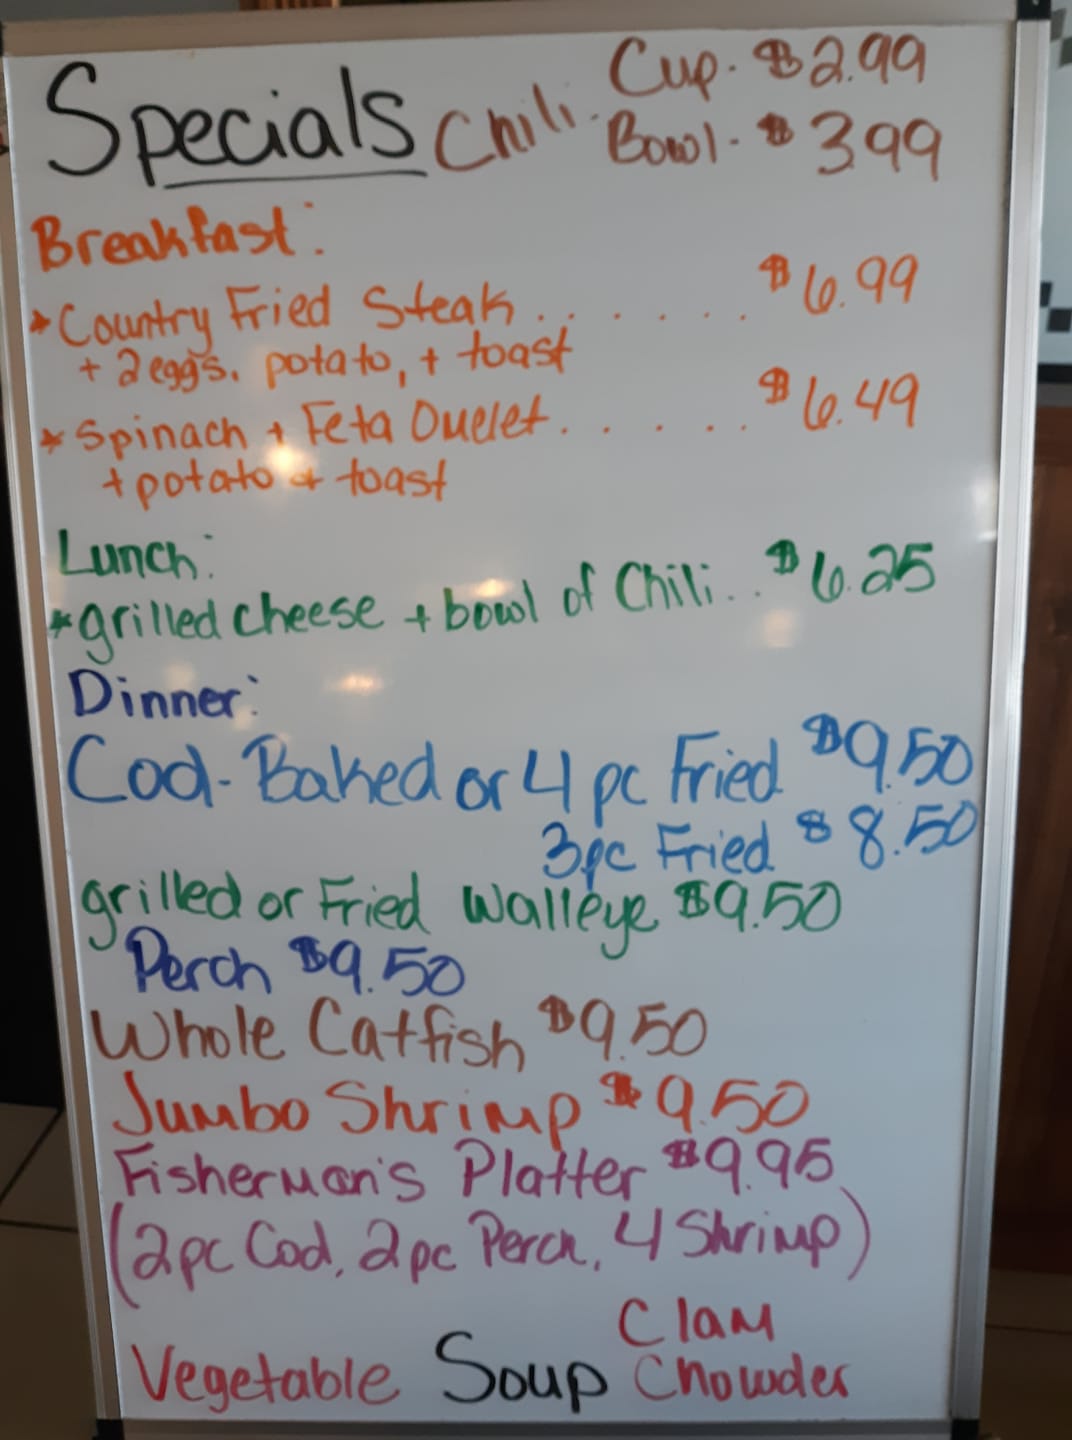 Specials Chili. Cup. $2.99
Bowl. $3.99
Breakfast:
* Country Fried Steak....... $6.99
+ 2 eggs, potato, + toast
* Spinach + Feta Omelet...... $6.49
+ potato + toast
Lunch:
* grilled cheese + bowl of Chili.. $6.25
Dinner:
Cod-Baked or 4 pc Fried $9.50
3pc Fried $8.50
grilled or Fried Walleye $9.50
Perch $9.50
Whole Catfish $9.50
Jumbo Shrimp $9.50
Fisherman's Platter $9.95
(2pc Cod, 2pc Perch, 4 Shrimp)
Vegetable Soup Clam
Chowder